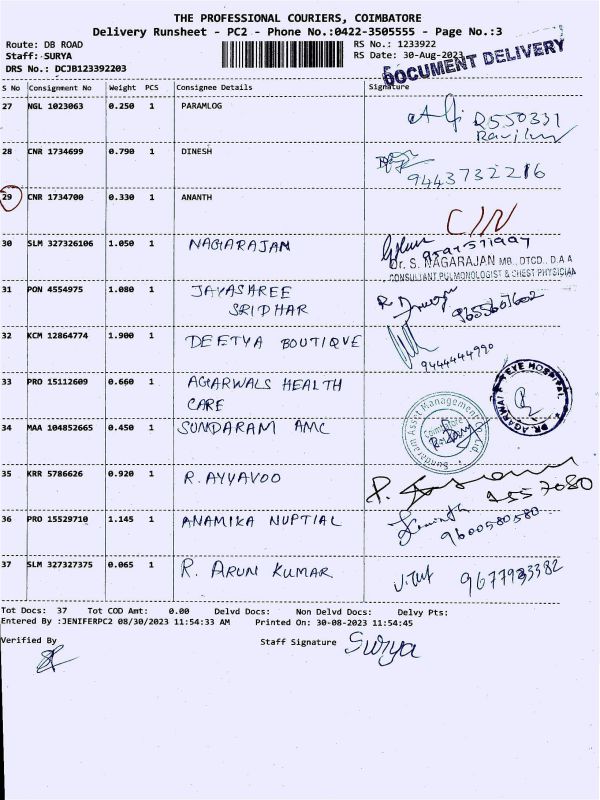 THE PROFESSIONAL COURIERS, COIMBATORE
Delivery Runsheet - PC2 - Phone No.:0422-3505555 - Page No.:3
Route: DB ROAD RS No.: 1233922
Staff: SURYA RS Date: 30-Aug-2023
DRS No.: DCJB123392203 DOCUMENT DELIVERY
S No Consignment No Weight PCS Consignee Details Signature
27 NGL 1023063 0.250 1 PARAMLOG
28 CNR 1734699 0.790 1 DINESH 9443732216
29 CNR 1734700 0.330 1 ANANTH C/N
30 SLM 327326106 1.050 1 NAGARAJAN
Dr. S. NAGARAJAN MB., DTCD., D.A.A
CONSULTANT PULMONOLOGIST & CHEST PHYSICIAN
31 PON 4554975 1.080 1 JAYASHREE
SRIDHAR 9655601602
32 KCM 12864774 1.900 1 DEETYA BOUTIQUE
9444444990
33 PRO 15112609 0.660 1 AGARWALS HEALTH
CARE
DR. AGARWAL'S EYE HOSPITAL
34 MAA 104852665 0.450 1 SUNDARAM AMC
Sundaram Asset Management Ltd
35 KRR 5786626 0.920 1 R. AYYAVOO
9557080
36 PRO 15529710 1.145 1 ANAMIKA NUPTIAL
9600580580
37 SLM 327327375 0.065 1 R. ARUN KUMAR 9677933382
Tot Docs: 37 Tot COD Amt: 0.00 Delvd Docs: Non Delvd Docs: Delvy Pts:
Entered By :JENIFERPC2 08/30/2023 11:54:33 AM Printed On: 30-08-2023 11:54:45
Verified By Staff Signature Surya